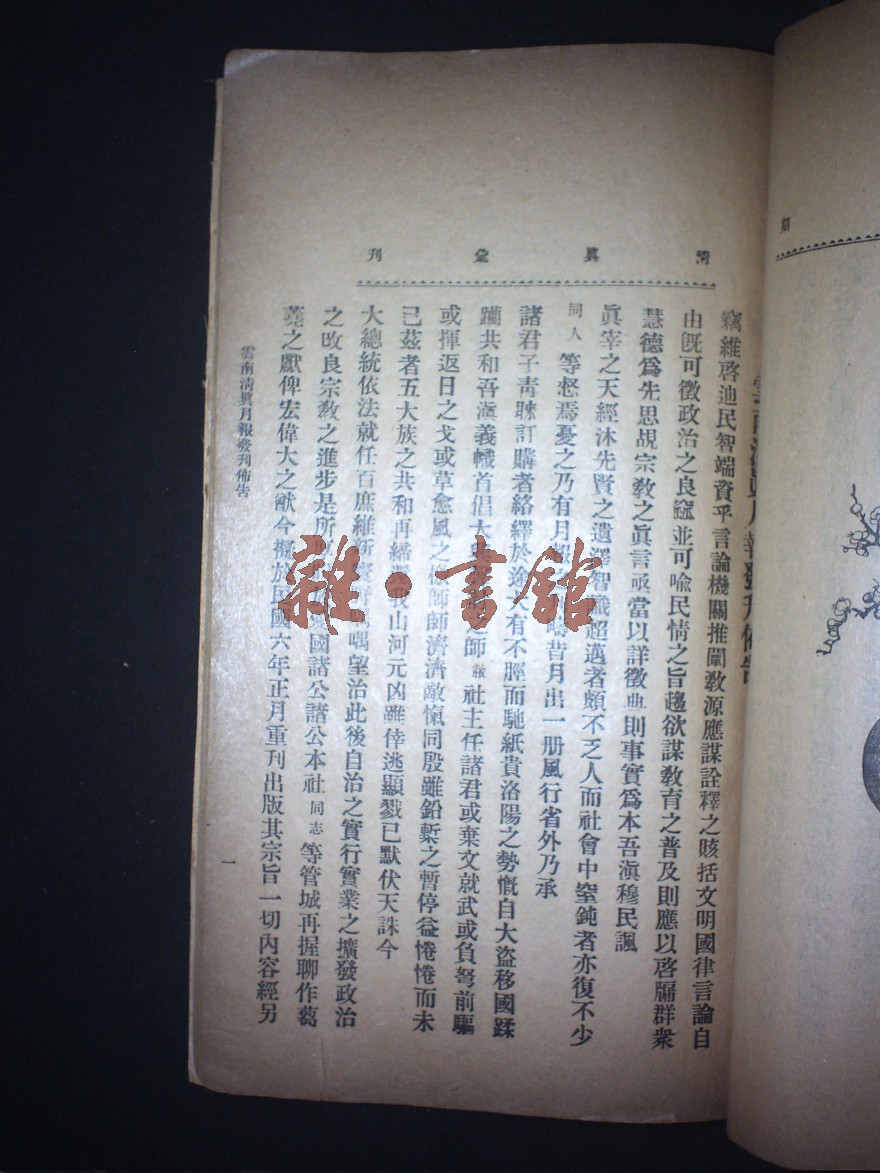 清真彙刊
雲南清眞月報發刊佈告
竊維啓迪民智端資乎言論機關推闡敎源應謀詮釋之賅括文明國律言論自
由旣可徵政治之良窳並可喩民情之旨趨欲謀敎育之普及則應以啓牖群衆
慧德爲先思覘宗敎之眞言亟當以詳徵典則事實爲本吾滇穆民諷
眞宰之天經沐先賢之遺澤智識超邁者頗不乏人而社會中窒鈍者亦復不少
同人等惄焉憂之乃有月報 疇昔月出一册風行省外乃承
諸君子靑睞訂購者絡繹於途大有不脛而馳紙貴洛陽之勢慨自大盜移國蹂
躪共和吾滇義幟首倡大 之師敝社主任諸君或棄文就武或負弩前驅
或揮返日之戈或草愈風之檄師師濟濟敵愾同殷雖鉛槧之暫停益惓惓而未
已茲者五大族之共和再締還我山河元凶雖倖逃顯戮已默伏天誅今
大總統依法就任百庶維新 喁望治此後自治之實行實業之擴發政治
之改良宗敎之進步是所 國諸公諸公本社同志等管城再握聊作蒭
蕘之獻俾宏偉大之猷今擬於民國六年正月重刊出版其宗旨一切內容經另
雲南淸眞月報發刊佈告
一
期
雜·書館